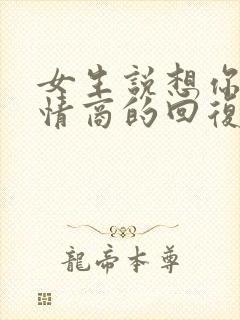 女生說想你
情商的回復
龍帝本尊